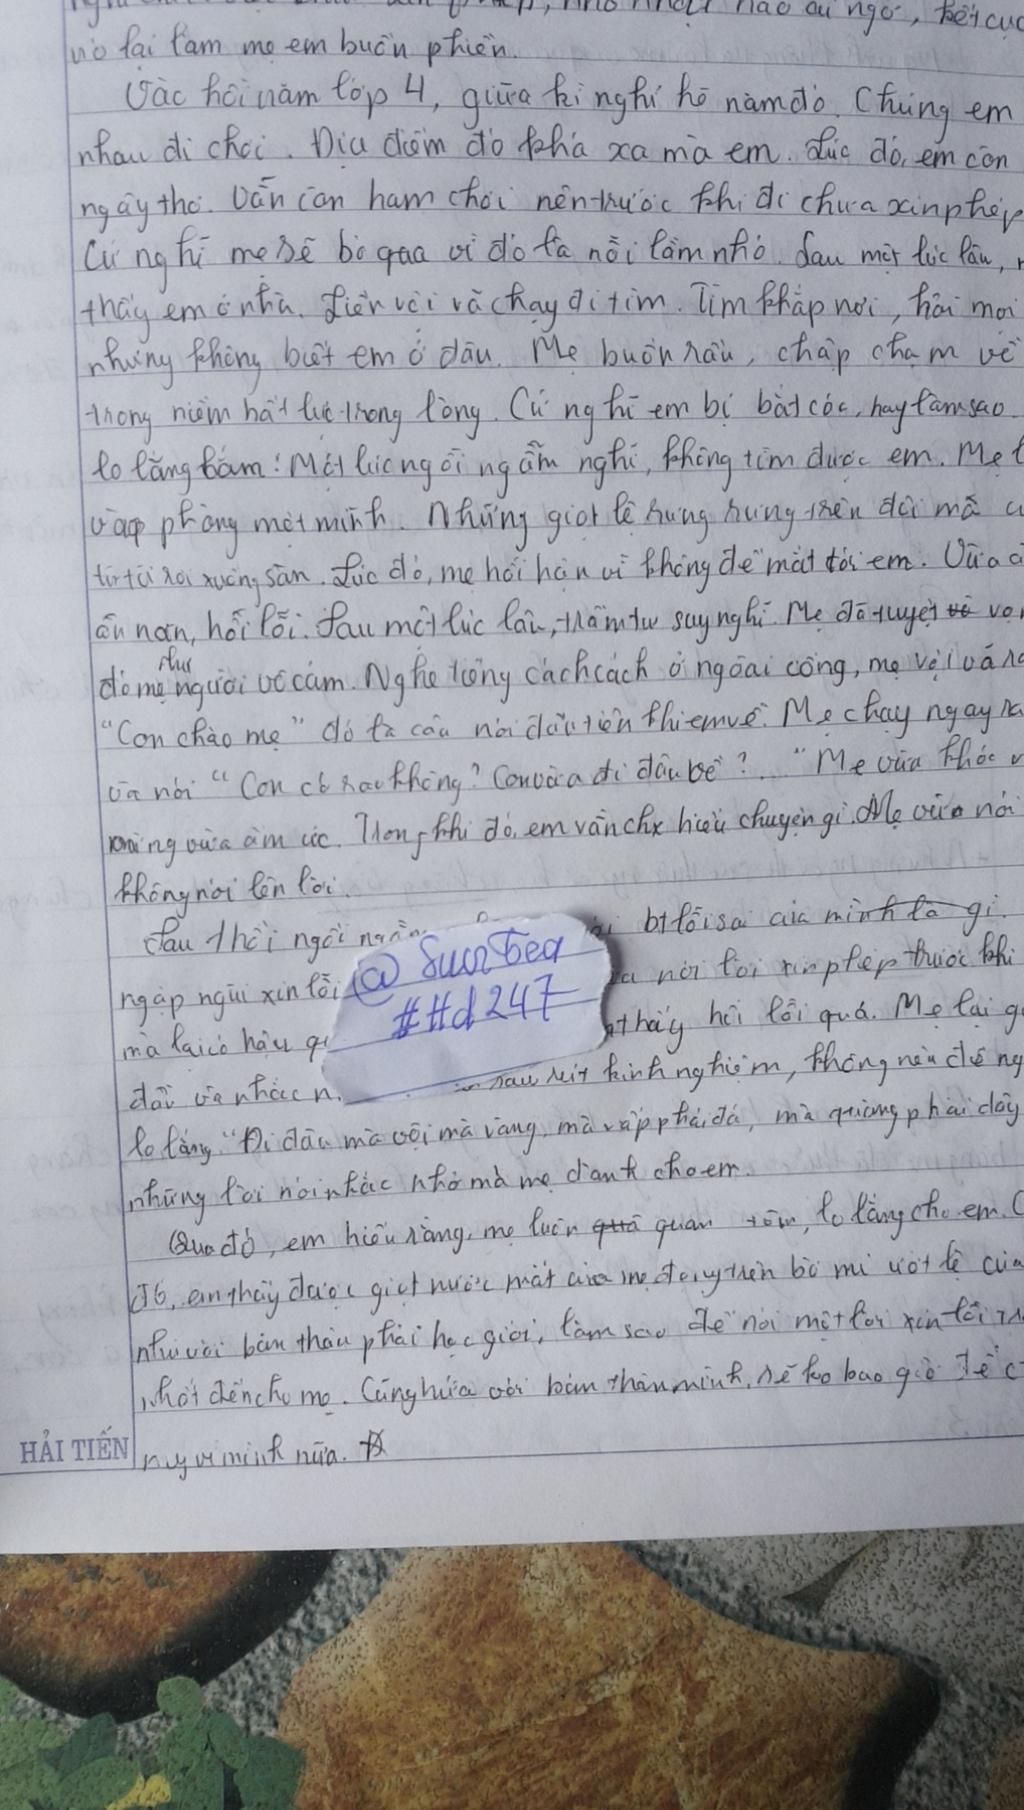 nó lại làm mẹ em buồn phiền.
Vác hồi năm lớp 4, giữa kì nghỉ hè năm đó. Chúng em
nhau đi chơi. Địa điểm đó khá xa mà em. Lúc đó, em còn
ngây thơ. Vẫn còn ham chơi nên trước khi đi chưa xin phép
Cứ nghĩ mẹ sẽ bỏ qua vì đó là nỗi lầm nhỏ. Sau một lúc lâu,
thấy em ở nhà. Liền vội vã chạy đi tìm. Tìm khắp nơi, hỏi mọi
nhưng không biết em ở đâu. Mẹ buồn rầu, chập chạm về
trong niềm bất lực trong lòng. Cứ nghĩ em bị bắt cóc, hay làm sao
lo lắng lắm! Một lúc ngồi ngẫm nghĩ, không tìm được em. Mẹ
vào phòng một mình. Những giọt lệ rưng rưng trên đôi mắt
từ từ rơi xuống sàn. Lúc đó, mẹ hối hận vì không để mắt tới em. Vừa
ăn năn, hối lỗi. Sau một lúc lâu, trầm tư suy nghĩ. Mẹ đã tuyệt vọ
đó mẹ như người vô cảm. Nghe tiếng cách cách ở ngoài cổng, mẹ vội vã
"Con chào mẹ" đó là câu nói đầu tiên khi em về. Mẹ chạy ngay ra
và nói "Con có sao không? Con vừa đi đâu về?..." Mẹ vừa khóc
mừng vừa ấm ức. Trong khi đó, em vẫn chx hiểu chuyện gì. Mẹ vừa nói
không nói lên lời.
Sau 1 hồi ngồi bt lỗi sai của mình là gì.
ngập ngùi xin lỗi nói lời xin phép trước khi
mà lại có hậu thấy hối lỗi quá. Mẹ lại
dài và nhắc sau rút kinh nghiệm, không nên để
lo lắng "Đi đâu mà vội mà vàng, mà vấp phải đá, mà quàng phải dây
những lời nói nhắc nhở mà mẹ dành cho em.
Qua đó, em hiểu rằng, mẹ luôn quá quan tâm, lo lắng cho em.
đó, em thấy được giọt nước mắt của mẹ đọng trên bờ mi ướt lệ của
như với bản thân phải học giỏi, làm sao để nói một lời xin lỗi
nhất đến cho mẹ. Cũng hứa với bản thân mình, sẽ ko bao giờ để
mình nữa.
HẢI TIẾN
@ SunTea
##d247